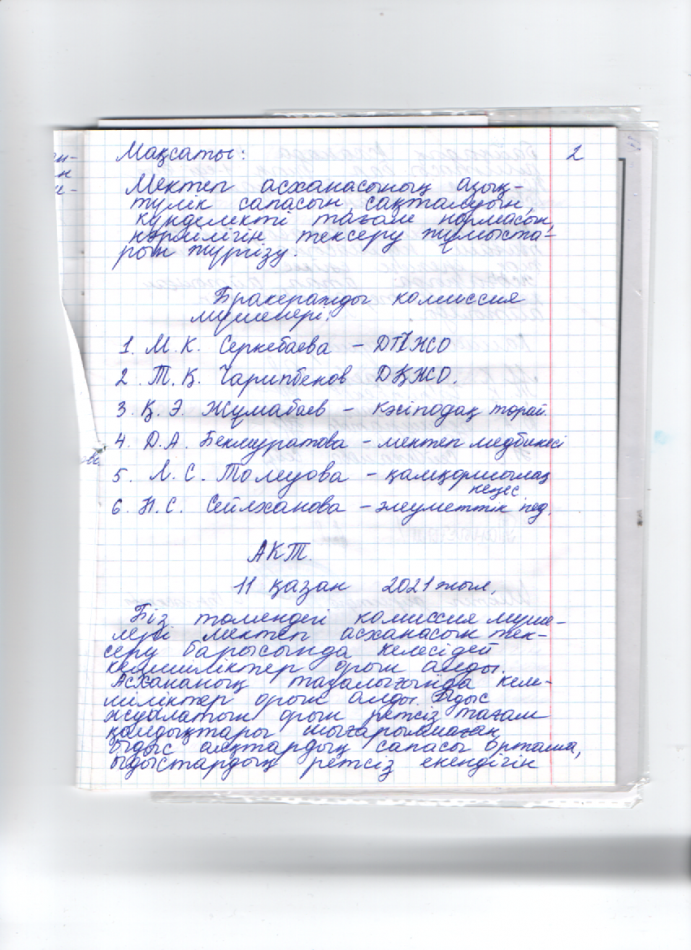 2
Мақсаты:
Мектеп асханасының азық-
түлік сапасын, сақталуын,
күнделекті тағам нормасын,
нәрлілігін тексеру жұмыста-
рын жүргізу.
Бракеражды комиссия
мүшелері:
1. М.К. Серкебаева – ДТІЖО
2. Т.Қ. Чарипбеков ДҚЖО.
3. Қ.Э. Жұмабаев – кәсіподақ төрай
4. Д.А. Бекмуратова – мектеп медбикесі
5. Л.С. Төлеуова – қамқоршылық
кеңес
6. Н.С. Сейлханова – әлеуметтік пед.
АКТ.
11 қазан 2021 жыл.
Біз төмендегі комиссия мүше-
лері мектеп асханасын тек-
серу барысында келесідей
кемшіліктер орын алды.
Асхананың тазалығында кем-
шіліктер орын алды. Ыдыс
жуылатын орын ретсіз тағам
қалдықтары шығарылмаған
Ыдыс аяқтардың сапасы орташа,
ыдыстардың ретсіз екендігін